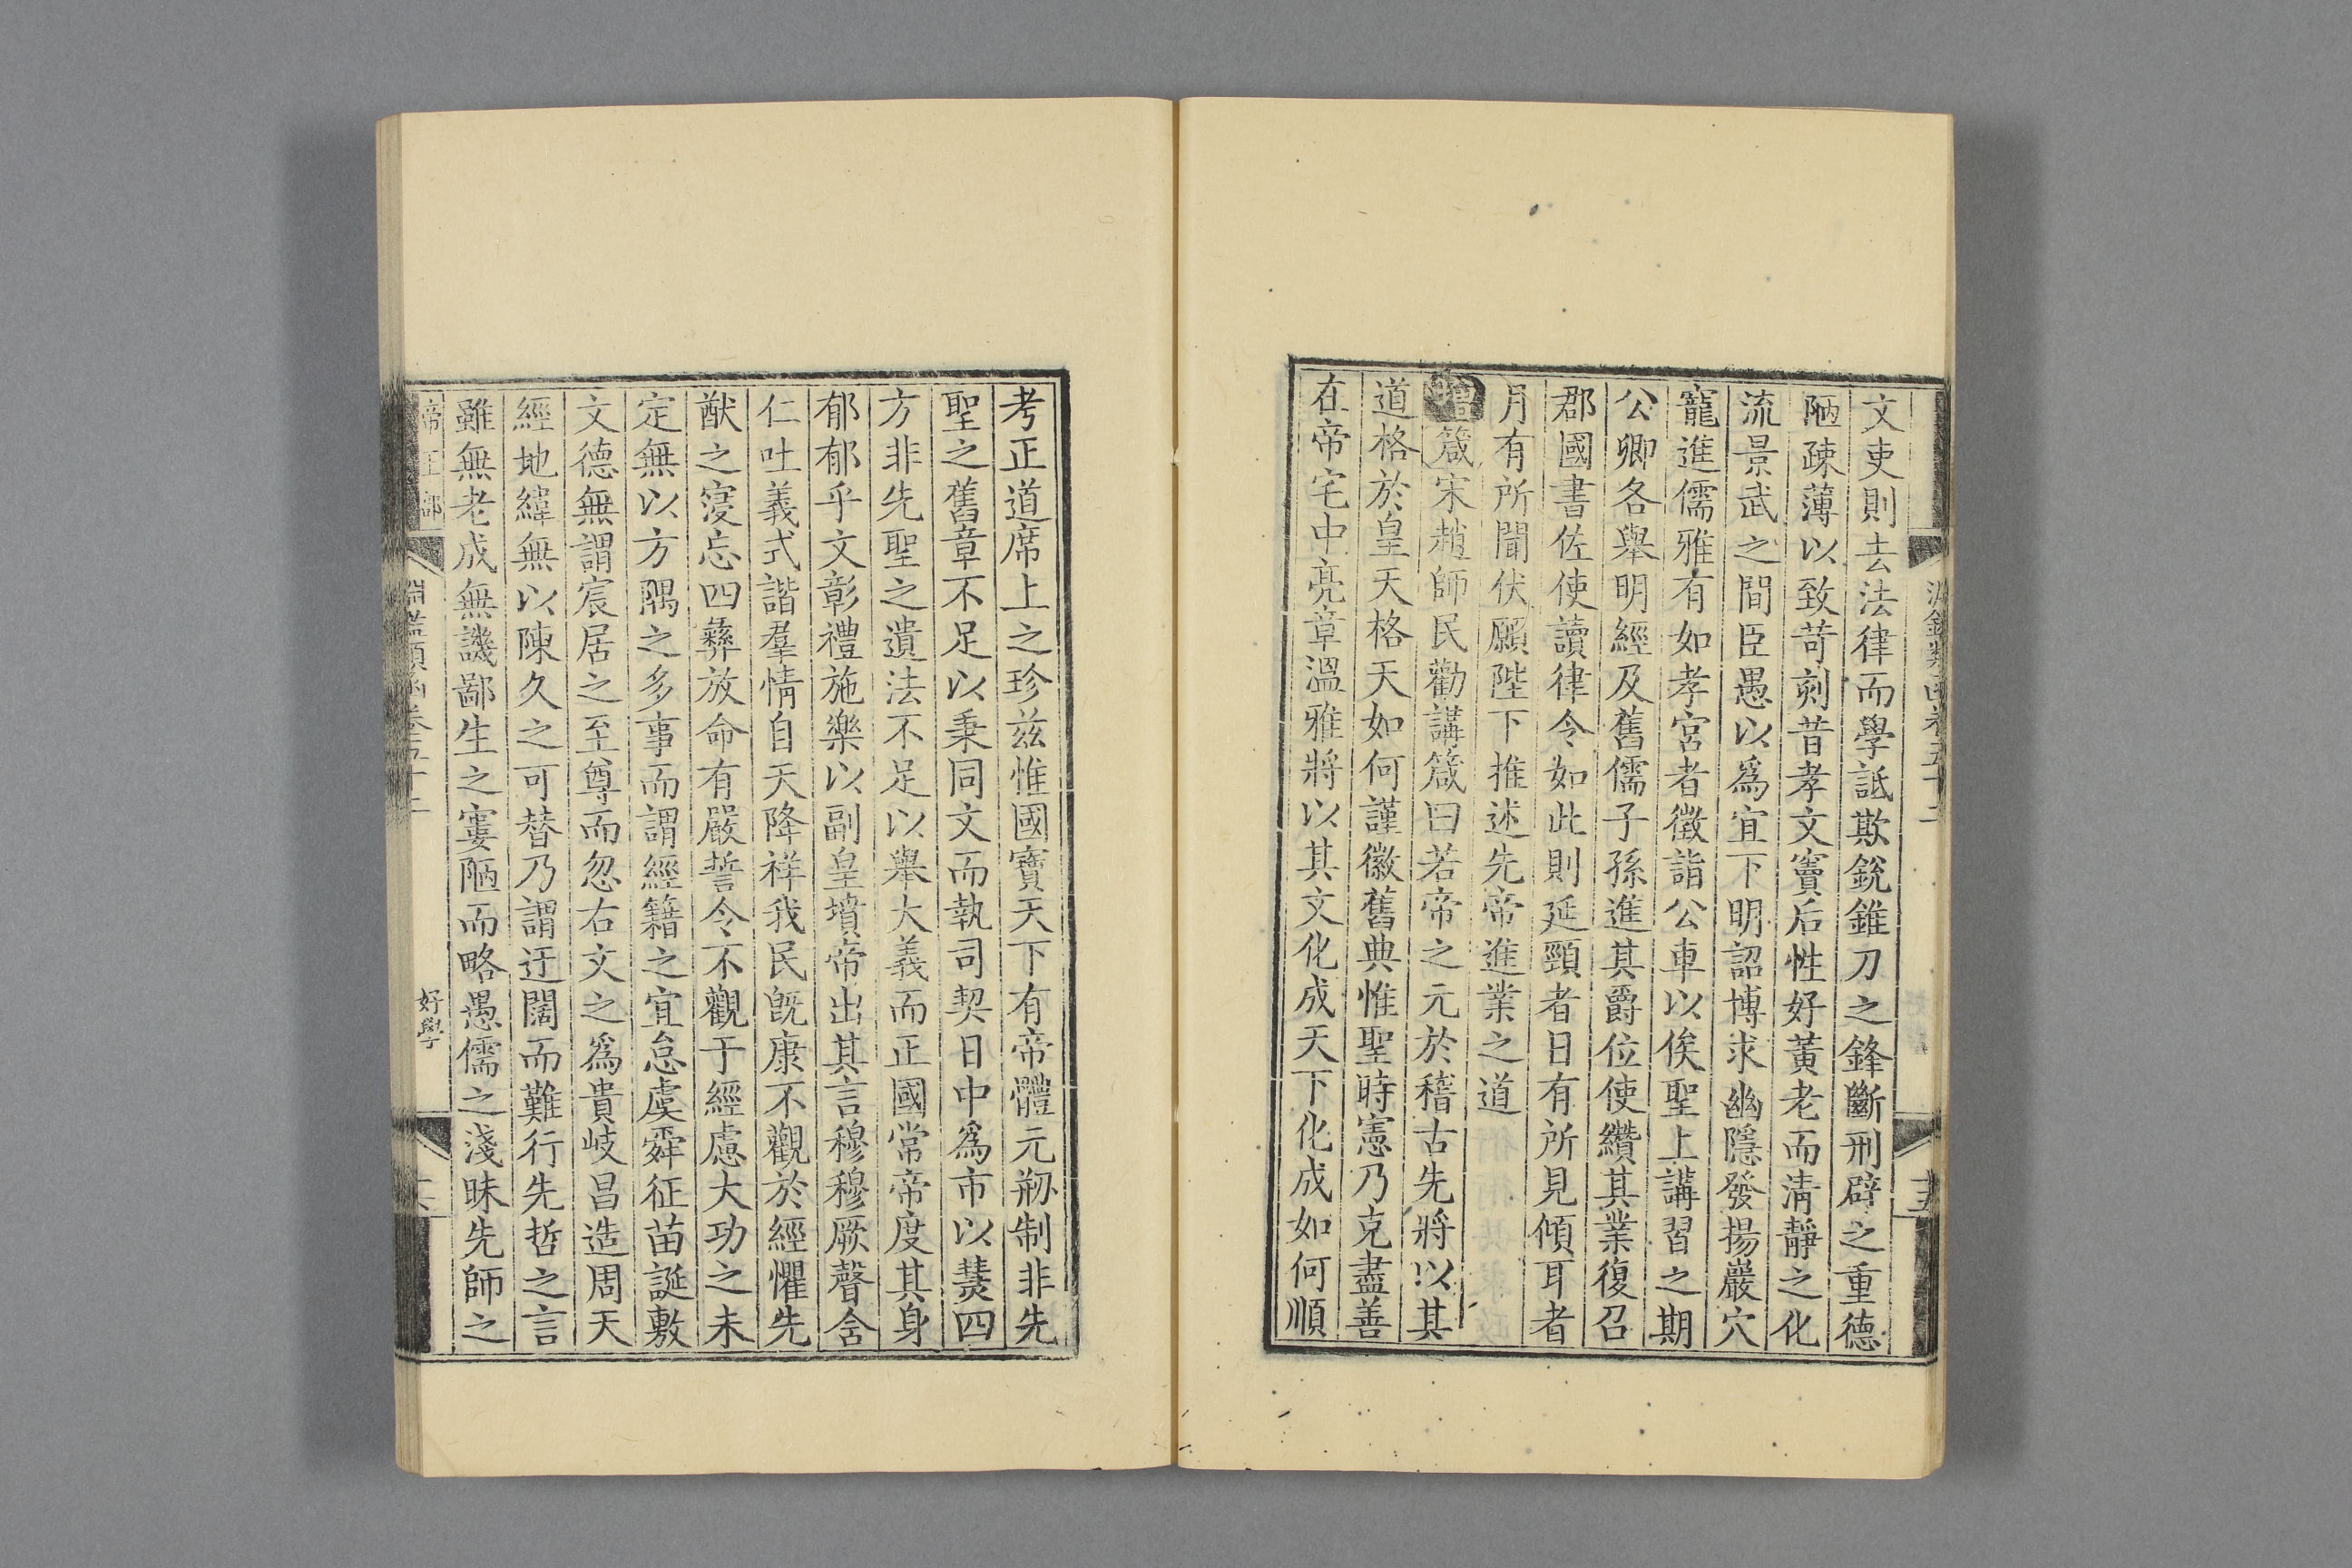 文吏則去法律而學詆欺銳錐刀之鋒斷刑辟之重德
陋疎薄以致苛刻昔孝文竇后性好黃老而清靜之化
流景武之間臣愚以爲宜下明詔博求幽隱發揚巖穴
寵進儒雅有如孝宮者徵詣公車以俟聖上講習之期
公卿各舉明經及舊儒子孫進其爵位使纘其業復召
郡國書佐使讀律令如此則延頸者日有所見傾耳者
月有所聞伏願陛下推述先帝進業之道
增箴宋趙師民勸講箴曰若帝之元於稽古先將以其
道格於皇天格天如何謹徽舊典惟聖時憲乃克盡善
在帝宅中亮章溫雅將以其文化成天下化成如何順
考正道席上之珍兹惟國寶天下有帝體元剏制非先
聖之舊章不足以秉同文而執司契日中爲市以燹四
方非先聖之遺法不足以舉大義而正國常帝度其身
郁郁乎文彰禮施樂以副皇墳帝出其言穆穆厥聲含
仁吐義式諧羣情自天降祥我民旣康不觀於經懼先
猷之寖忘四彝放命有嚴誓令不觀于經慮大功之未
定無以方隅之多事而謂經籍之宜怠虞舜征苗誕敷
文德無謂宸居之至尊而忽右文之爲貴岐昌造周天
經地緯無以陳久之可替乃謂迂闊而難行先哲之言
雖無老成無譏鄙生之寠陋而略愚儒之淺昧先師之
帝王部
淵鑑類函卷五十二
好學